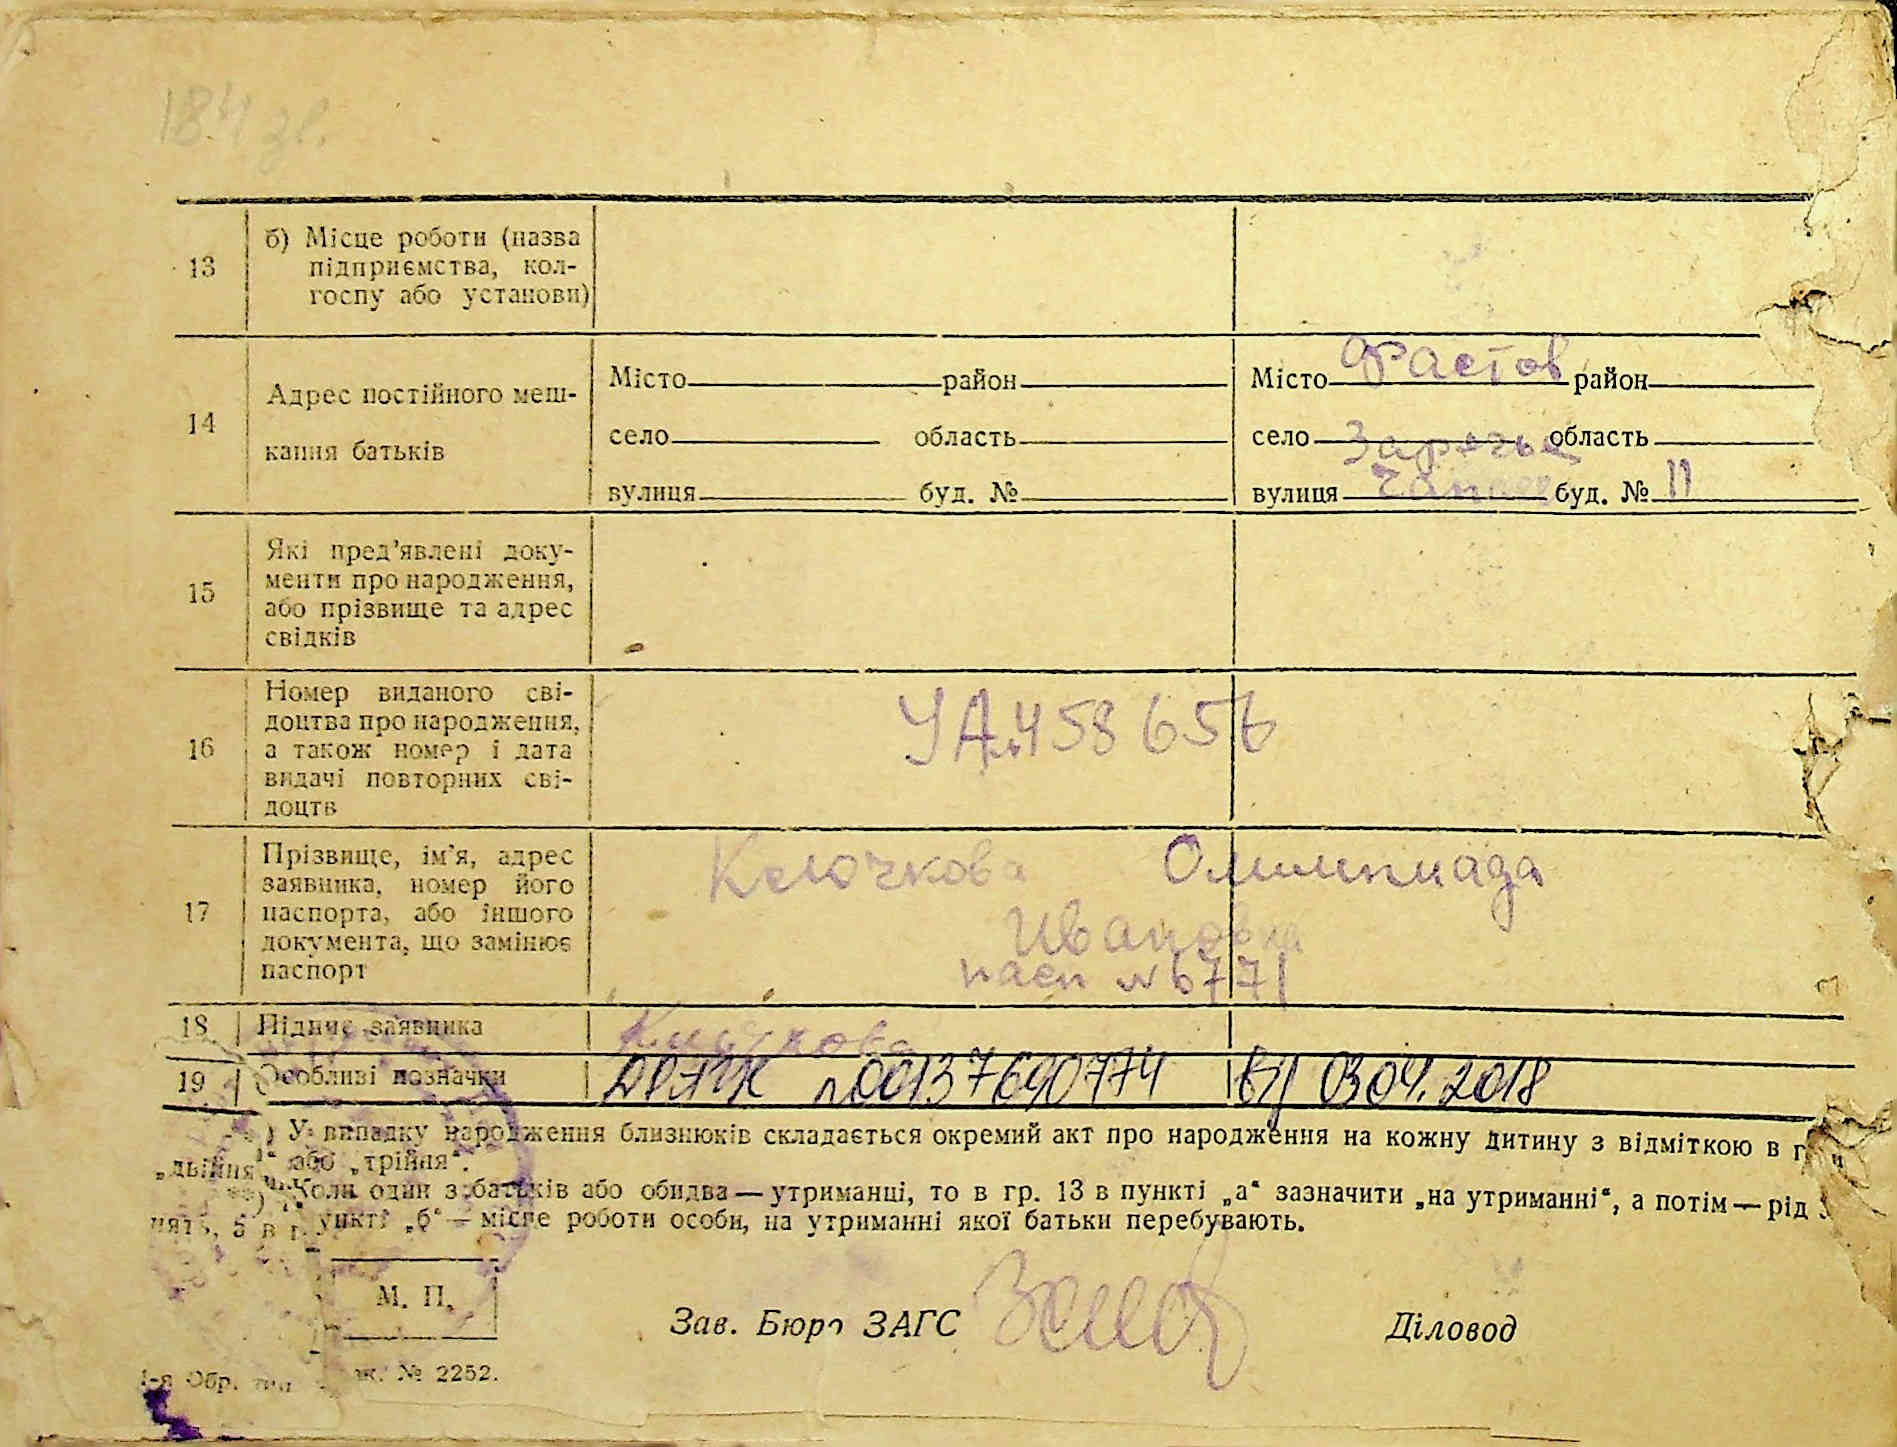 184 зв.
13
б) Місце роботи (назва
підприємства, кол-
госпу або установи)
14
Адрес постійного меш-
кання батьків
Місто район
село область
вулиця буд. №
Місто Фастов район
село Заречье область
вулиця Чапаев буд. № 11
15
Які пред'явлені доку-
менти про народження,
або прізвище та адрес
свідків
16
Номер виданого сві-
доцтва про народження,
а також номер і дата
видачі повторних сві-
доцтв
УА№458656
17
Прізвище, ім'я, адрес
заявника, номер його
паспорта, або іншого
документа, що замінює
паспорт
Клочкова Олимпиада
Ивановна
пасп № 6771
18 Підпис заявника
Клочкова
19 Особливі позначки
n00137690774 від 03.04.2018
*) У випадку народження близнюків складається окремий акт про народження на кожну дитину з відміткою в
„двійня“ або „трійня“.
**) Коли один з батьків або обидва — утриманці, то в гр. 13 в пункті „а“ зазначити „на утриманні“, а потім — рід
нять, а в пункті „б“ — місце роботи особи, на утриманні якої батьки перебувають.
М. П.
Зав. Бюро ЗАГС Діловод
1-я Обр. тип № 2252.